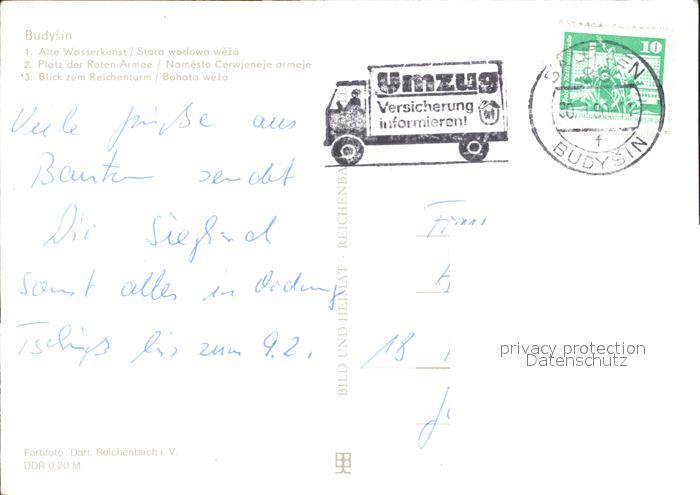 Budyšin
1. Alte Wasserkunst / Stara wodowa wěža
2. Platz der Roten Armee / Naměsto Čerwjeneje armeje
*3. Blick zum Reichenturm / Bohata wěža
Umzug
Versicherung
informieren!
10
BUDYŠIN
f
Viele Grüße aus
Bautzen sendet
Dir Sieglind
Sonst alles in Ordnung
Tschüß bis zum 9.2.
Frau
18
BILD UND HEIMAT · REICHENBA
privacy protection
Datenschutz
Farbfoto: Darr. Reichenbach i. V.
DDR 0,20 M